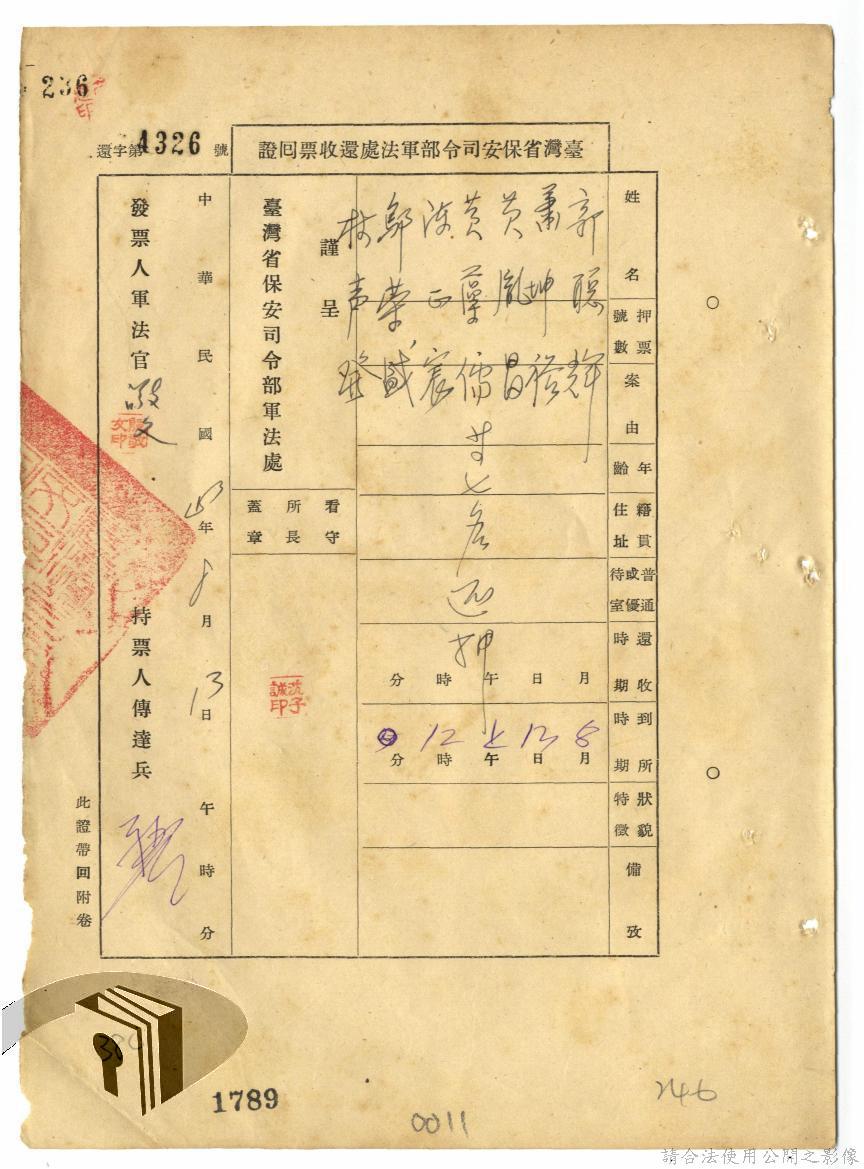 236
還字第4326號
臺灣省保安司令部軍法處還收票囘證
姓名
押票號數
案由
年齡
籍貫住址
普通或優待室
還收時期
到所時期
狀貌特徵
備攷
郭聰輝
蕭坤裕
黃胤昌
黃蘊儒
陳正宸
鄭榮盛
林声發
等七名還押
月日午時分
8月13日上午12時0分
謹呈
臺灣省保安司令部軍法處
看守所長蓋章
沈子誠印
中華民國43年8月13日午時分
發票人軍法官
持票人傳達兵
此證帶囘附卷
1789
0011
246
請合法使用公開之影像